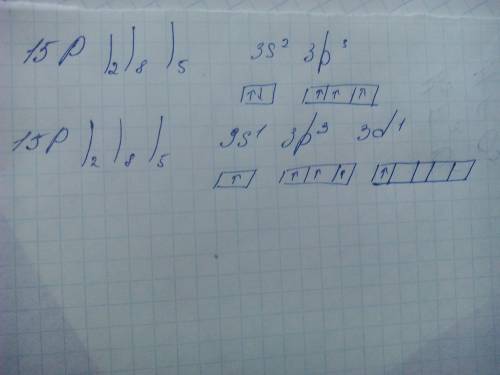 15P )2 )8 )5 3s² 3p³
↑↓ ↑ ↑ ↑
15P )2 )8 )5 3s¹ 3p³ 3d¹
↑ ↑ ↑ ↑ ↑